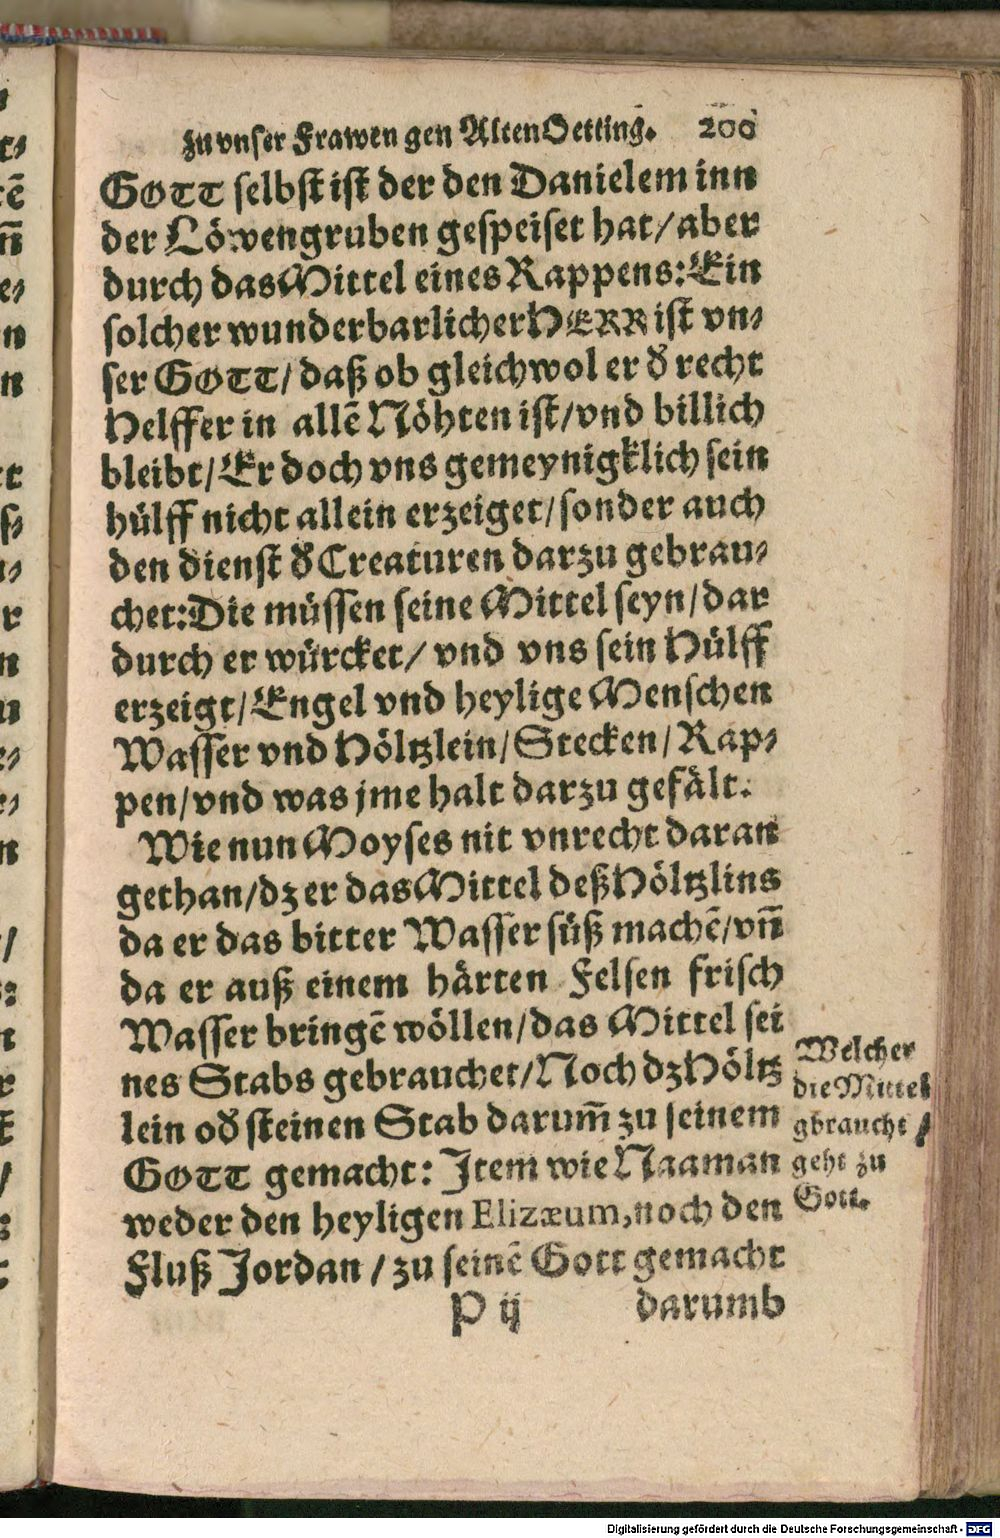 zu vnser Frawen gen Alten Oetting. 200
GOTT selbst ist der den Danielem inn
der Löwengruben gespeiset hat/ aber
durch das Mittel eines Rappens: Ein
solcher wunderbarlicher HERR ist vn⸗
ser GOTT/ daß ob gleichwol er d̕ recht
Helffer in allē Nöhten ist/ vnd billich
bleibt/ Er doch vns gemeynigklich sein
hülff nicht allein erzeiget/ sonder auch
den dienst d̕ Creaturen darzu gebrau⸗
chet: Die müssen seine Mittel seyn/ dar
durch er würcket/ vnd vns sein Hülff
erzeigt/ Engel vnd heylige Menschen
Wasser vnd Höltzlein/ Stecken/ Rap⸗
pen/ vnd was jme halt darzu gefält.
Wie nun Moyses nit vnrecht daran
gethan/ dz er das Mittel deß Höltzlins
da er das bitter Wasser süß machē/ vñ
da er auß einem härten Felsen frisch
Wasser bringē wöllen/ das Mittel sei
nes Stabs gebrauchet/ Noch dz Höltz
lein od̕ steinen Stab darum̃ zu seinem
GOTT gemacht: Item wie Naaman
weder den heyligen Elizæum, noch den
Fluß Jordan / zu seinē Gott gemacht
P ij darumb
Welcher
die Mittel
gbraucht /
geht zu
Gott.
Digitalisierung gefördert durch die Deutsche Forschungsgemeinschaft - DFG